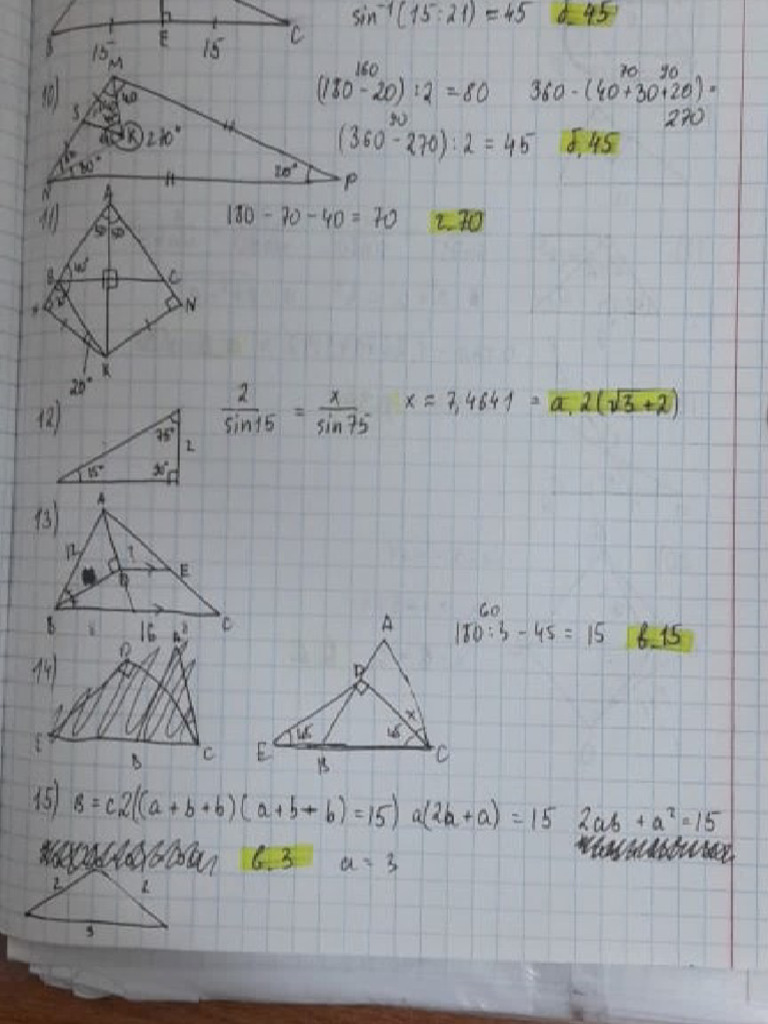 sin⁻¹(15:21) = 45 б. 45
B 15 E 15 C
10) M 40 S K 270° N 80° 20° P
160
(180 - 20) : 2 = 80
70 90
360 - (40+30+20) =
270
90
(360 - 270) : 2 = 45 б. 45
11) A 50 50 40° B C N K 20°
180 - 70 - 40 = 70 г. 70
12) 75° 2 15° 90°
2/sin15 = x/sin75 x ≈ 7,4641 = а. 2(√3+2)
13) A 12 ? D E B 16 C
14) D E B C
A D x 45 45 E B C
60
180:3 - 45 = 15 в. 15
15) B = c2((a + b + b)(a + b + b) = 15) a(2b + a) = 15 2ab + a² = 15
в. 3 a = 3
2 2 3